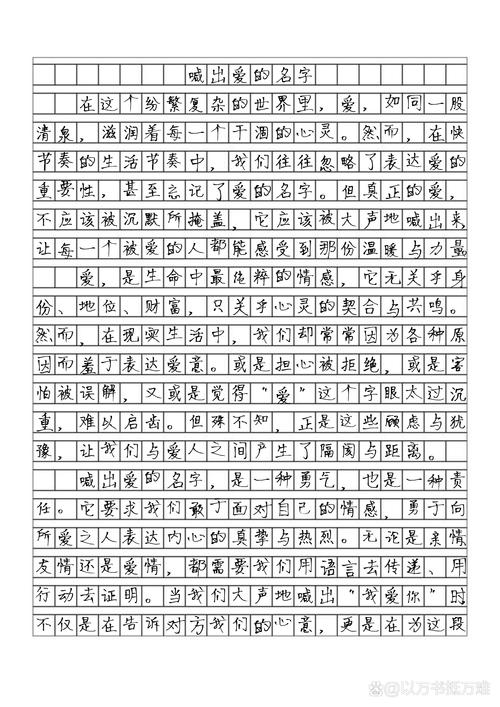 喊出爱的名字
在这个纷繁复杂的世界里，爱，如同一股
清泉，滋润着每一个干涸的心灵。然而，在快
节奏的生活节奏中，我们往往忽略了表达爱的
重要性，甚至忘记了爱的名字。但真正的爱，
不应该被沉默所掩盖，它应该被大声地喊出来，
让每一个被爱的人都能感受到那份温暖与力量
爱，是生命中最纯粹的情感，它无关乎身
份、地位、财富，只关乎心灵的契合与共鸣。
然而，在现实生活中，我们却常常因为各种原
因而羞于表达爱意。或是担心被拒绝，或是害
怕被误解，又或是觉得“爱”这个字眼太过沉
重，难以启齿。但殊不知，正是这些顾虑与犹
豫，让我们与爱人之间产生了隔阂与距离。
喊出爱的名字，是一种勇气，也是一种责
任。它要求我们敢于面对自己的情感，勇于向
所爱之人表达内心的真挚与热烈。无论是亲情
友情还是爱情，都需要我们用语言去传递、用
行动去证明。当我们大声地喊出“我爱你”时
不仅是在告诉对方我们的心意，更是在为这段
@以万书抵万难